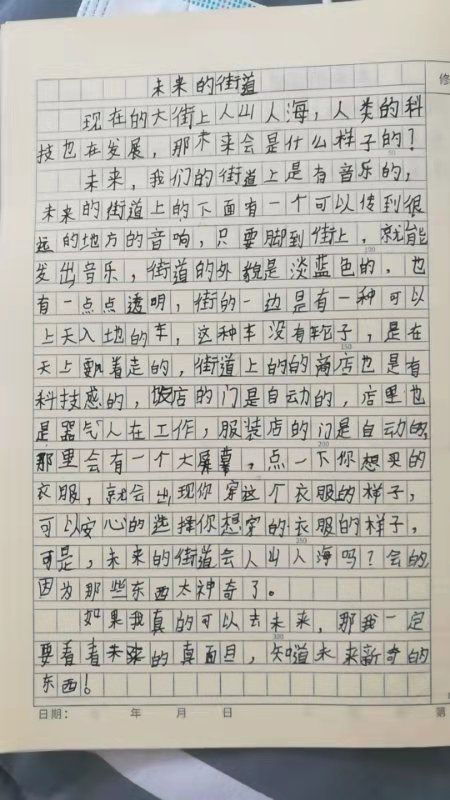 修
未来的街道
现在的大街上人山人海，人类的科
技也在发展，那未来会是什么样子的？
未来，我们的街道上是有音乐的，
未来的街道上的下面有一个可以传到很
远的地方的音响，只要脚到街上，就能
发出音乐，街道的外貌是淡蓝色的，也
有一点点透明，街的一边是有一种可以
上天入地的车，这种车没有轮子，是在
天上飘着走的，街道上的的商店也是有
科技感的，饭店的门是自动的，店里也
是器气人在工作，服装店的门是自动的，
那里会有一个大屏幕，点一下你想买的
衣服，就会出现你穿这个衣服的样子，
可以安心的选择你想穿的衣服的样子，
可是，未来的街道会人山人海吗？会的，
因为那些东西太神奇了。
如果我真的可以去未来，那我一定
要看看未来的真面目，知道未来新奇的
东西！
日期： 年 月 日 第